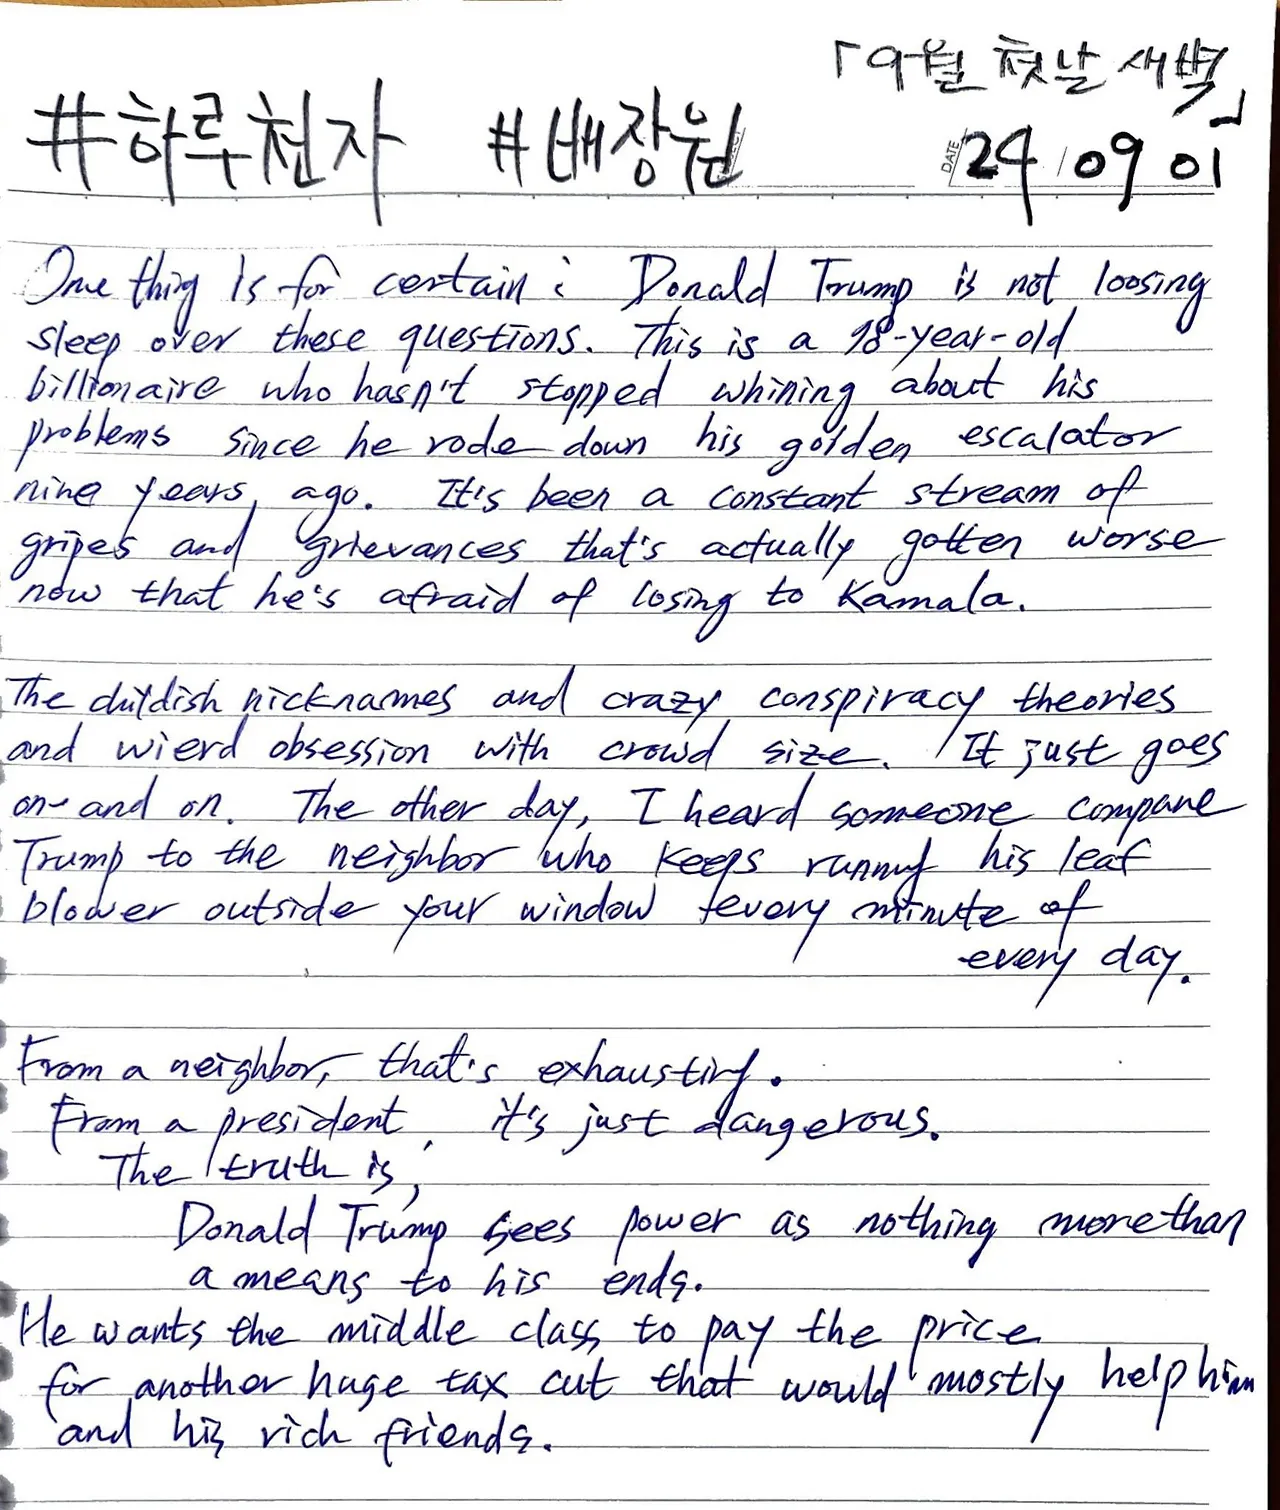 「9월 첫날 새벽」
#하루천자 #배장원
DATE 24/09 01
One thing is for certain : Donald Trump is not loosing
sleep over these questions. This is a 98-year-old
billionaire who hasn't stopped whining about his
problems since he rode down his golden escalator
nine years ago. It's been a constant stream of
gripes and grievances that's actually gotten worse
now that he's afraid of losing to Kamala.
The childish nicknames and crazy conspiracy theories
and wierd obsession with crowd size. It just goes
on and on. The other day, I heard someone compare
Trump to the neighbor who keeps running his leaf
blower outside your window every minute of
every day.
From a neighbor, that's exhausting.
From a president, it's just dangerous.
The truth is,
Donald Trump sees power as nothing more than
a means to his ends.
He wants the middle class to pay the price
for another huge tax cut that would mostly help him
and his rich friends.